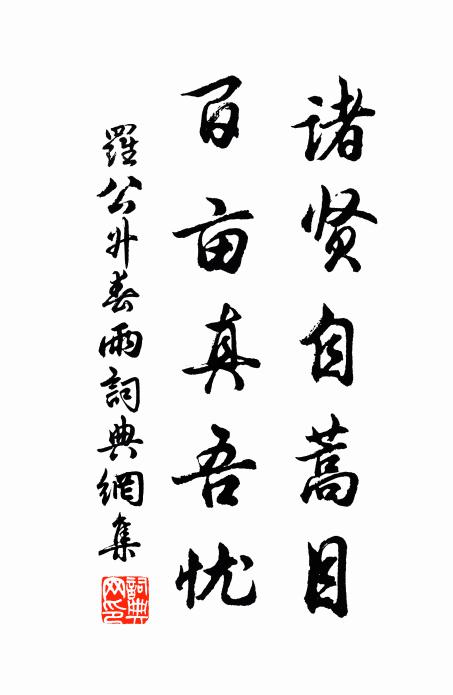 诸贤自蒿目
百亩真吾忧
羅公升春雨詞典網集
詞典
网印